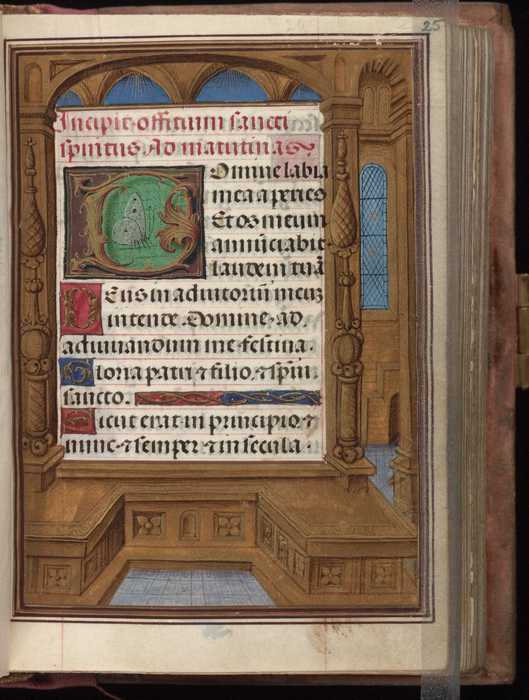 25
Incipit officium sancti
spiritus. Ad matutinas
Domine labia
mea aperies
Et os meum
annūciabit
laudem tuā
Deus in adiutoriū meuʒ
intende. Domine. ad.
adiuuandum me festina.
Gloria patri ⁊ filio. ⁊ spūi
sancto.
Sicut erat in principio. ⁊
nunc. ⁊ semper ⁊ in secula.